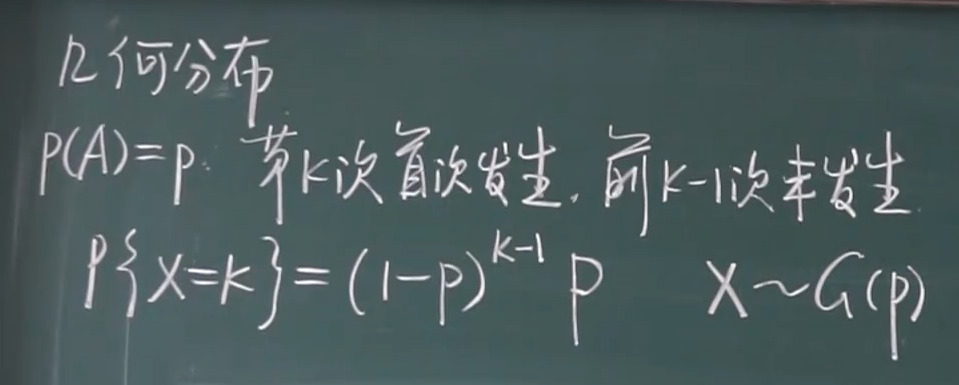 几何分布
P(A)=p. 第K次首次发生,前K-1次未发生
P{X=K}=(1-p)^{K-1} p X~G(p)